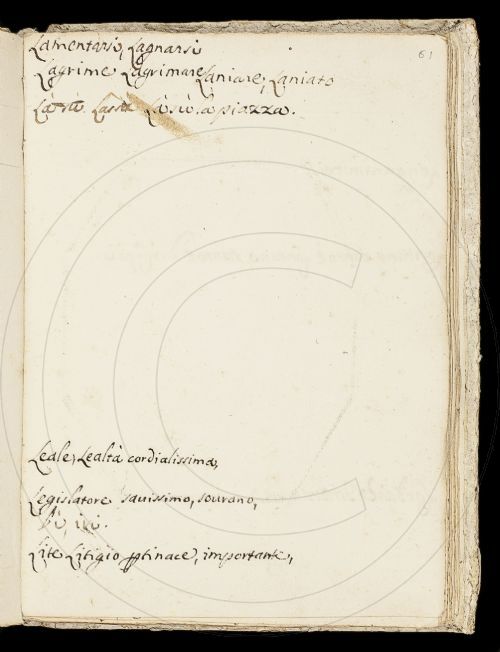 61
Lamentarsi, Lagnarsi
Lagrime Lagrimare Laniare, Laniato
Là sù à piazza.
Leale, Lealtà cordialissima,
Legislatore savissimo, sourano,
ivi.
Lite Litigio ptinace, importante,